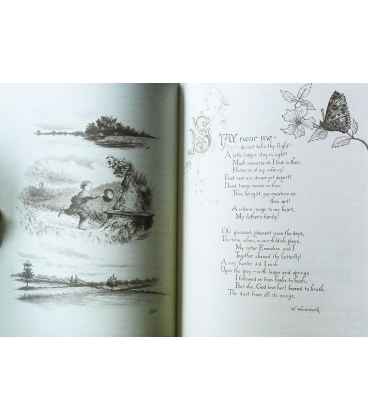 STAY near me—
do not take thy flight!
A little longer stay in sight!
Much converse do I find in thee,
Historian of my infancy!
Float near me; do not yet depart!
Dead times revive in thee:
Thou bring'st, gay creature as
thou art!
A solemn image to my heart,
My father's family!
Oh! pleasant, pleasant were the days,
The time, when, in our childish plays,
My sister Emmeline and I
Together chased the butterfly!
A very hunter did I rush
Upon the prey:—with leaps and springs
I followed on from brake to bush;
But she, God love her! feared to brush
The dust from off its wings.
W. Wordsworth